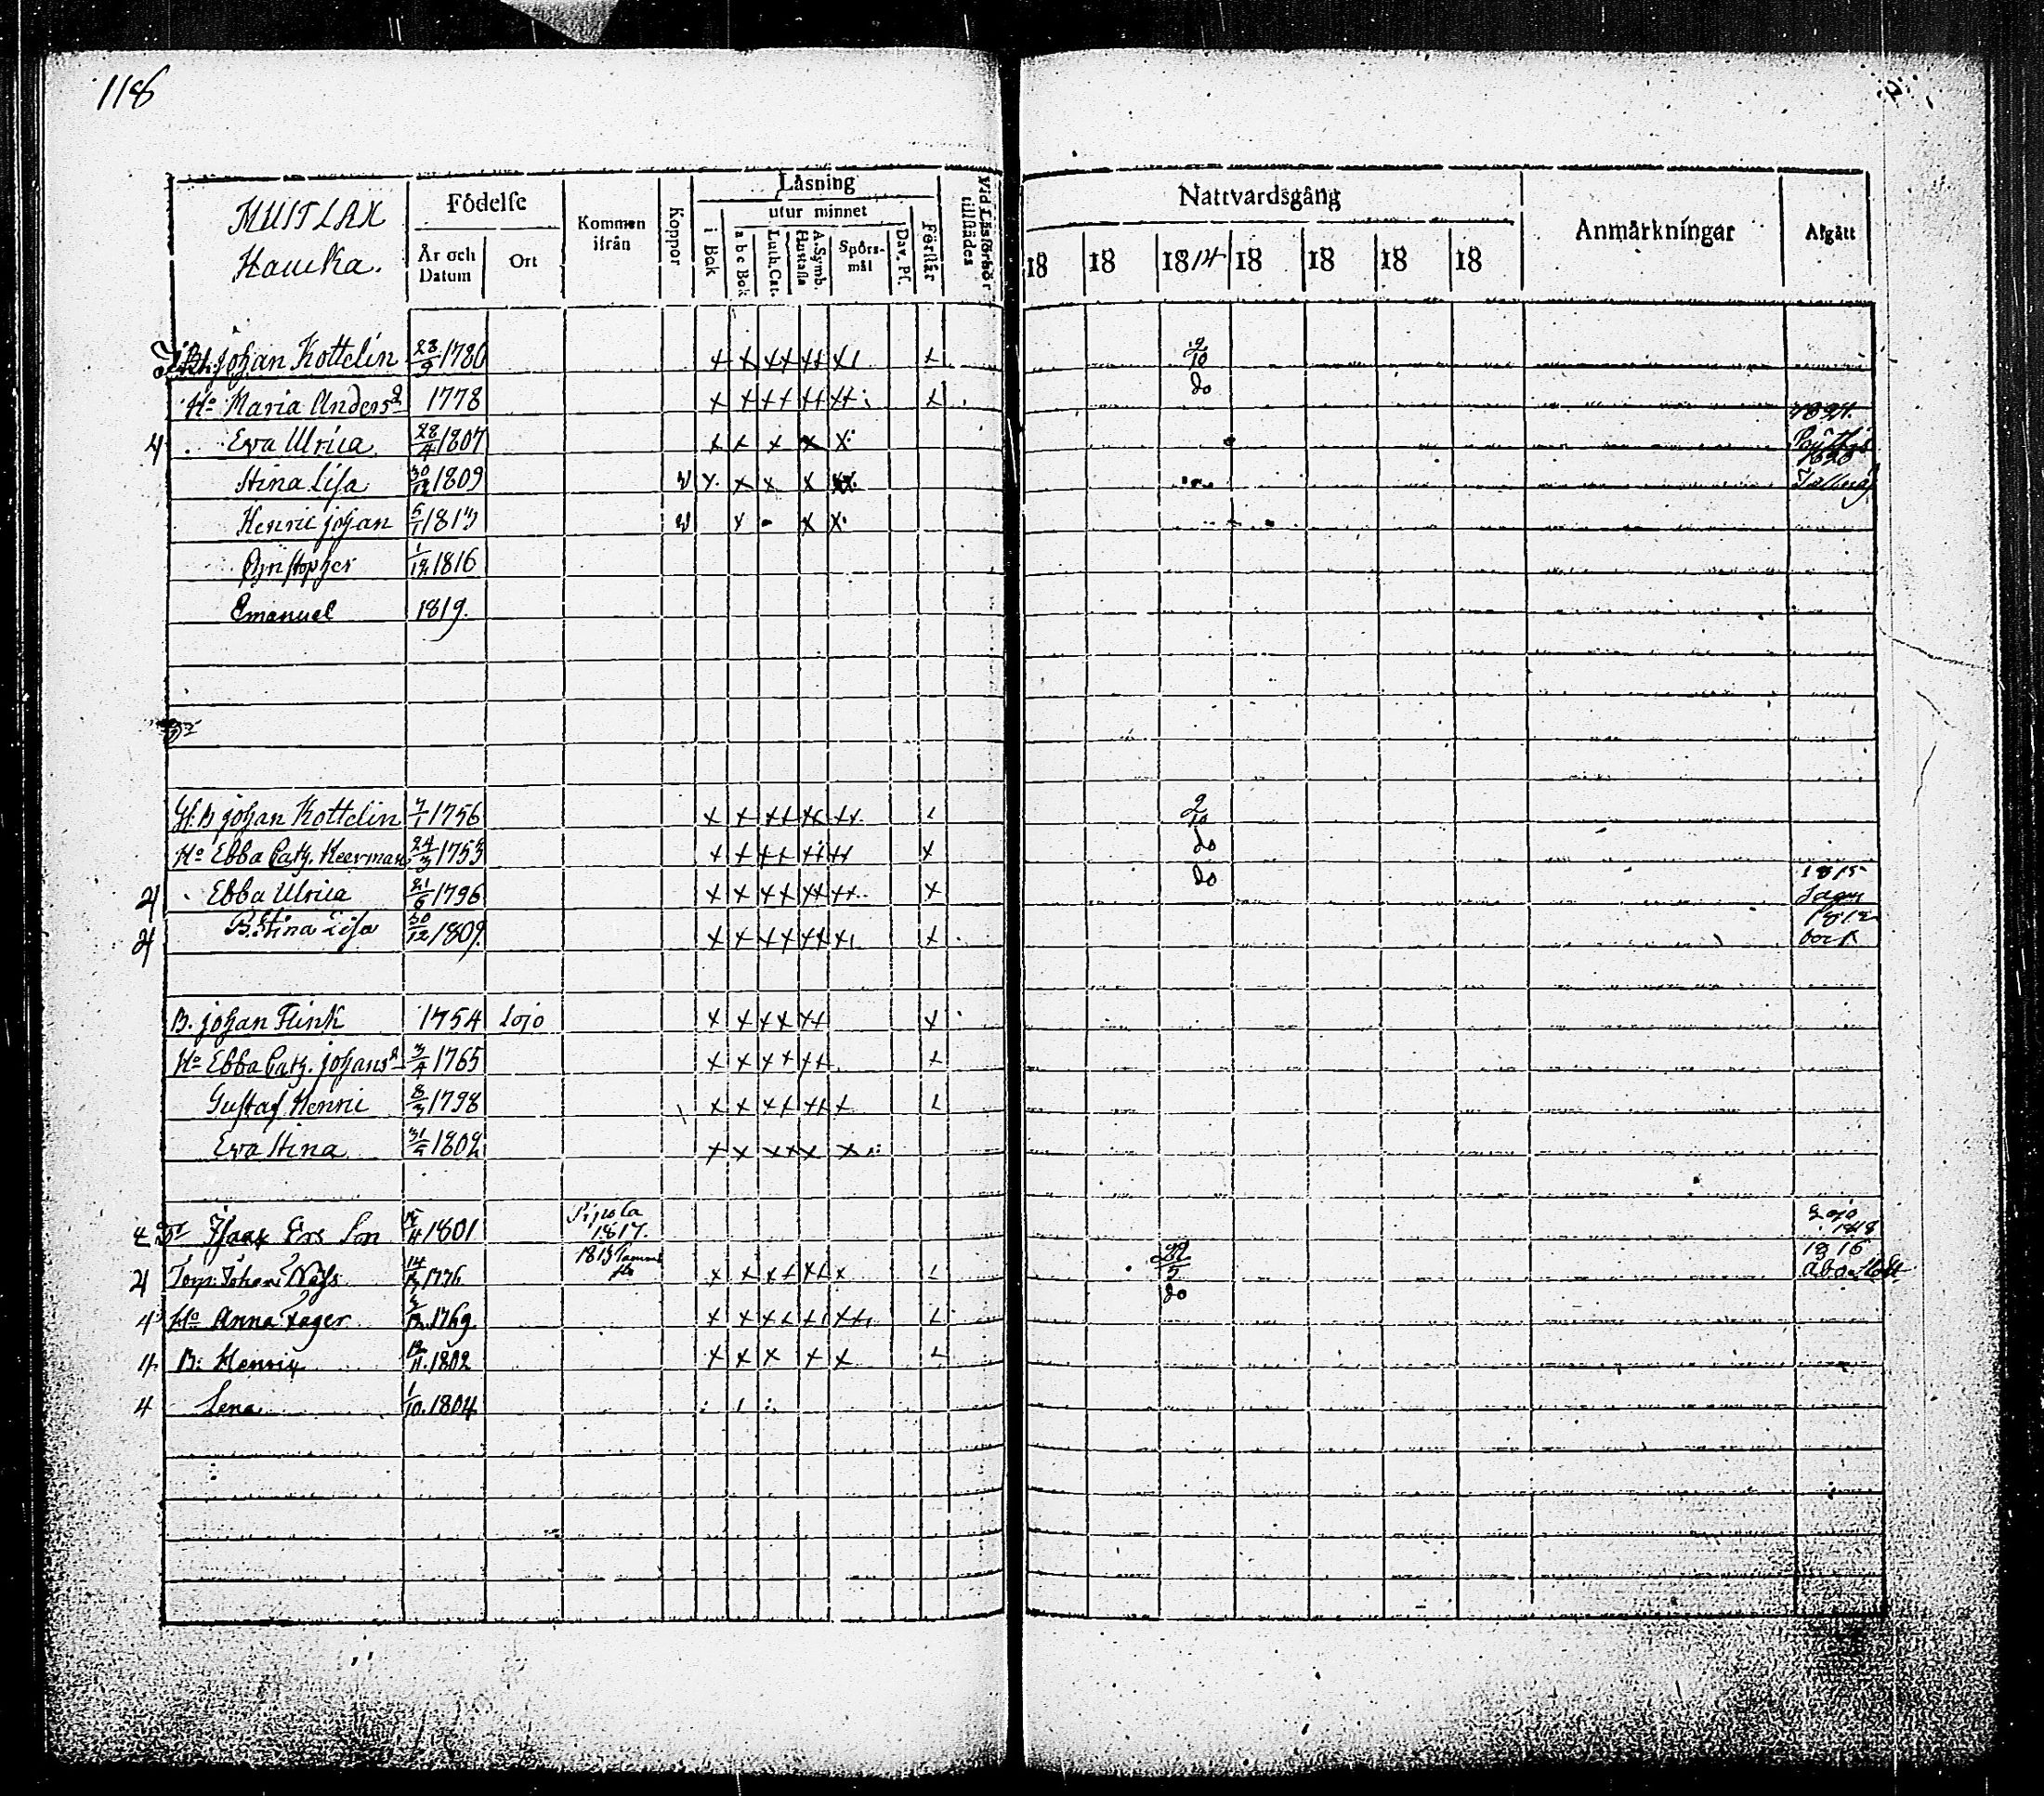 118
MUSTLAX
Hauuka.
Födelse
År och Datum
Ort
Kommen ifrån
Koppor
Låsning
i Bok
utur minnet
a b c Bok
Luth. Cat.
A. Symb. Hustafla
Spörsmål
Dav. Ps.
Förstår
Vid Läsförhör tillstädes
Nattvardsgång
18 18 1814 18 18 18 18
Anmärkningar
Afgått
Johan Kottelin 28/9 1780 x x xx xx x 2/10
Ho Maria Anders 1778 x x xx xx xx x do
4 Eva Ulrica 28/4 1807 x x x x x
Stina Lisa 30/12 1809 x x x x
Henric Johan 5/1 1813 x x x
Christopher 1/12 1816
Emanuel 1819.
Johan Kottelin 7/1 1756 x x xx xx xx 2/10
Ho Ebba Cath. Keerman 24/3 1753 x x xx xx xx x do
4 Ebba Ulrica 21/6 1796 x x xx xx xx x do 1815
4 B. Stina Lisa 30/12 1809. x x xx xx x x 1812 bort
B. Johan Flink 1754 Lojo x x xx xx x
Ho Ebba Cath. Johans 3/4 1765 x x xx xx x
Gustaf Henric 8/3 1798 x x xx xx x
Eva Stina 1802 x x xxx x
Isaax Ers Son 1801 1817. Lojo 1818
4 Johan Näss 1776 1813 x x xx xx x 29/5 1816 Åbo Slott
4 Ho Anna Lager 1769 x x xx x xx do
4 B: Henrix 1802 x x x x x
4 Lena 1/10. 1804